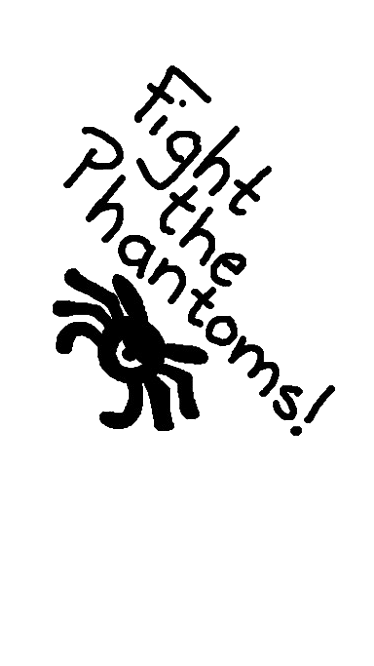 Fight
the
Phantoms!